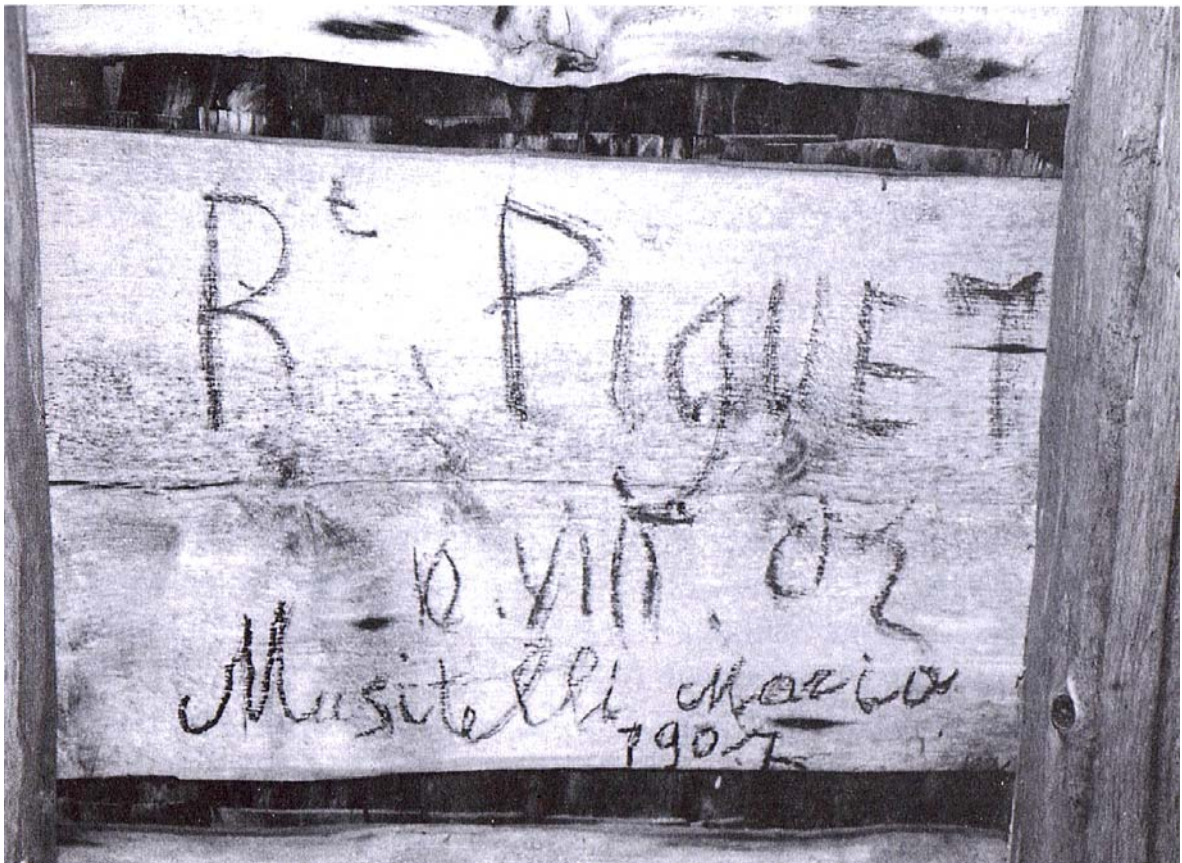 Rt. PigUET
10.VIII.02
Musitelli Mario
1907